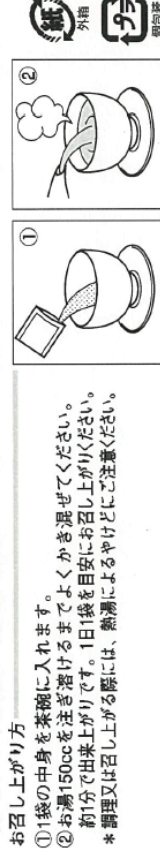 お召し上がり方
①1袋の中身を茶碗に入れます。
②お湯150ccを注ぎ溶けるまでよくかき混ぜてください。
約1分で出来上がりです。1日1袋を目安にお召し上がりください。
＊調理又は召し上がる際には、熱湯によるやけどにご注意ください。
①
②
紙
外箱
プラ
個包装